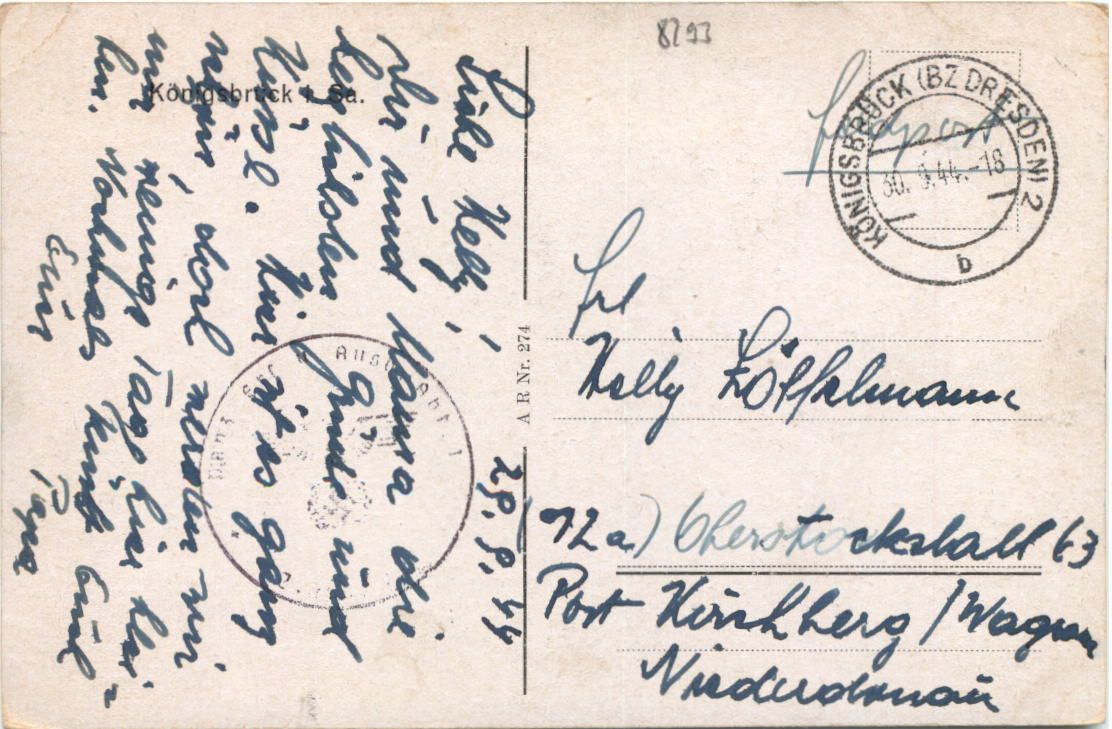 8293
Feldpost
KÖNIGSBRÜCK (BZ DRESDEN) 2
30. 9. 44. - 18
b
Königsbrück i. Sa.
Liebe Nelly! 29. 9. 44
Dir und Mama die
herzlichsten Grüße und
Küsse. Hier ist es ganz
schön, doch werden wir
nur wenige Tage hier blei-
ben. Nochmals küßt Euch
Euer Papa
A R Nr. 274
Frl
Nelly Löffelmann
(12a) Oberstockstall 63
Post Kirchberg / Wagram
Niederdonau